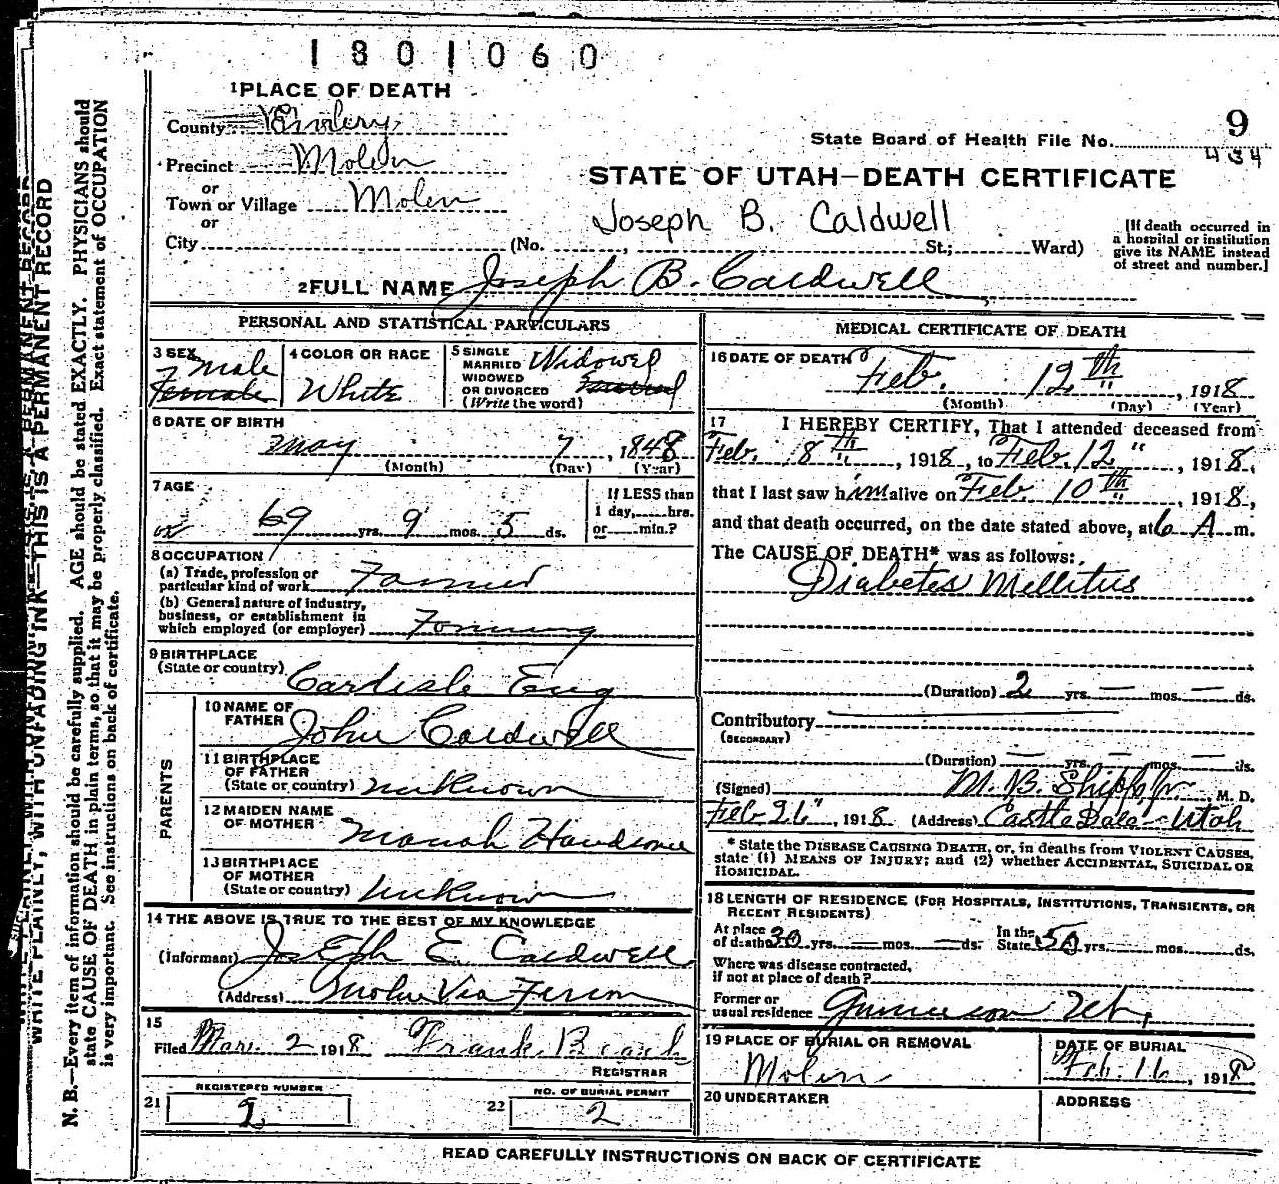 1801060
1 PLACE OF DEATH
County Emery
Precinct Molen
or
Town or Village Molen
or
City (No. , St.; Ward)
9
State Board of Health File No.
434
STATE OF UTAH—DEATH CERTIFICATE
Joseph B. Caldwell
[If death occurred in
a hospital or institution
give its NAME instead
of street and number.]
2 FULL NAME Joseph B. Caldwell
PERSONAL AND STATISTICAL PARTICULARS
3 SEX Male
Female
4 COLOR OR RACE
White
5 SINGLE
MARRIED
WIDOWED
OR DIVORCED
(Write the word)
Widowed
Married
6 DATE OF BIRTH
May 7, 1848
(Month) (Day) (Year)
7 AGE
69 yrs. 9 mos. 5 ds.
If LESS than
1 day, hrs.
or min.?
8 OCCUPATION
(a) Trade, profession or
particular kind of work Farmer
(b) General nature of industry,
business, or establishment in
which employed (or employer) Farming
9 BIRTHPLACE
(State or country) Cardisle Eng
PARENTS
10 NAME OF
FATHER John Caldwell
11 BIRTHPLACE
OF FATHER
(State or country) Unknown
12 MAIDEN NAME
OF MOTHER
13 BIRTHPLACE
OF MOTHER
(State or country) Unknown
14 THE ABOVE IS TRUE TO THE BEST OF MY KNOWLEDGE
(Informant) Joseph E. Caldwell
(Address) Molen Via Ferron
15
Filed Mar. 2 1918 Frank Beach
REGISTRAR
REGISTERED NUMBER
21 2
NO. OF BURIAL PERMIT
22 2
MEDICAL CERTIFICATE OF DEATH
16 DATE OF DEATH
Feb. 12th, 1918
(Month) (Day) (Year)
17 I HEREBY CERTIFY, That I attended deceased from
Feb. 8th, 1918, to Feb. 12", 1918,
that I last saw him alive on Feb. 10th, 1918,
and that death occurred, on the date stated above, at 6 A m.
The CAUSE OF DEATH* was as follows:
Diabetes Mellitus
(Duration) 2 yrs. — mos. — ds.
Contributory
(SECONDARY)
(Duration) — yrs. — mos. — ds.
(Signed) M. B. Shipp, Jr. M. D.
Feb 26", 1918 (Address) Castle Dale - Utah
* State the DISEASE CAUSING DEATH, or, in deaths from VIOLENT CAUSES,
state (1) MEANS OF INJURY; and (2) whether ACCIDENTAL, SUICIDAL OR
HOMICIDAL.
18 LENGTH OF RESIDENCE (FOR HOSPITALS, INSTITUTIONS, TRANSIENTS, OR
RECENT RESIDENTS)
At place
of death 30 yrs. — mos. — ds.
In the
State 50 yrs. mos. ds.
Where was disease contracted,
if not at place of death?
Former or
usual residence Gunnison Ut.
19 PLACE OF BURIAL OR REMOVAL
Molen
DATE OF BURIAL
Feb. 16, 1918
20 UNDERTAKER
ADDRESS
READ CAREFULLY INSTRUCTIONS ON BACK OF CERTIFICATE
WRITE PLAINLY, WITH UNFADING INK—THIS IS A PERMANENT RECORD
N. B.—Every item of information should be carefully supplied. AGE should be stated EXACTLY. PHYSICIANS should
state CAUSE OF DEATH in plain terms, so that it may be properly classified. Exact statement of OCCUPATION
is very important. See instructions on back of certificate.